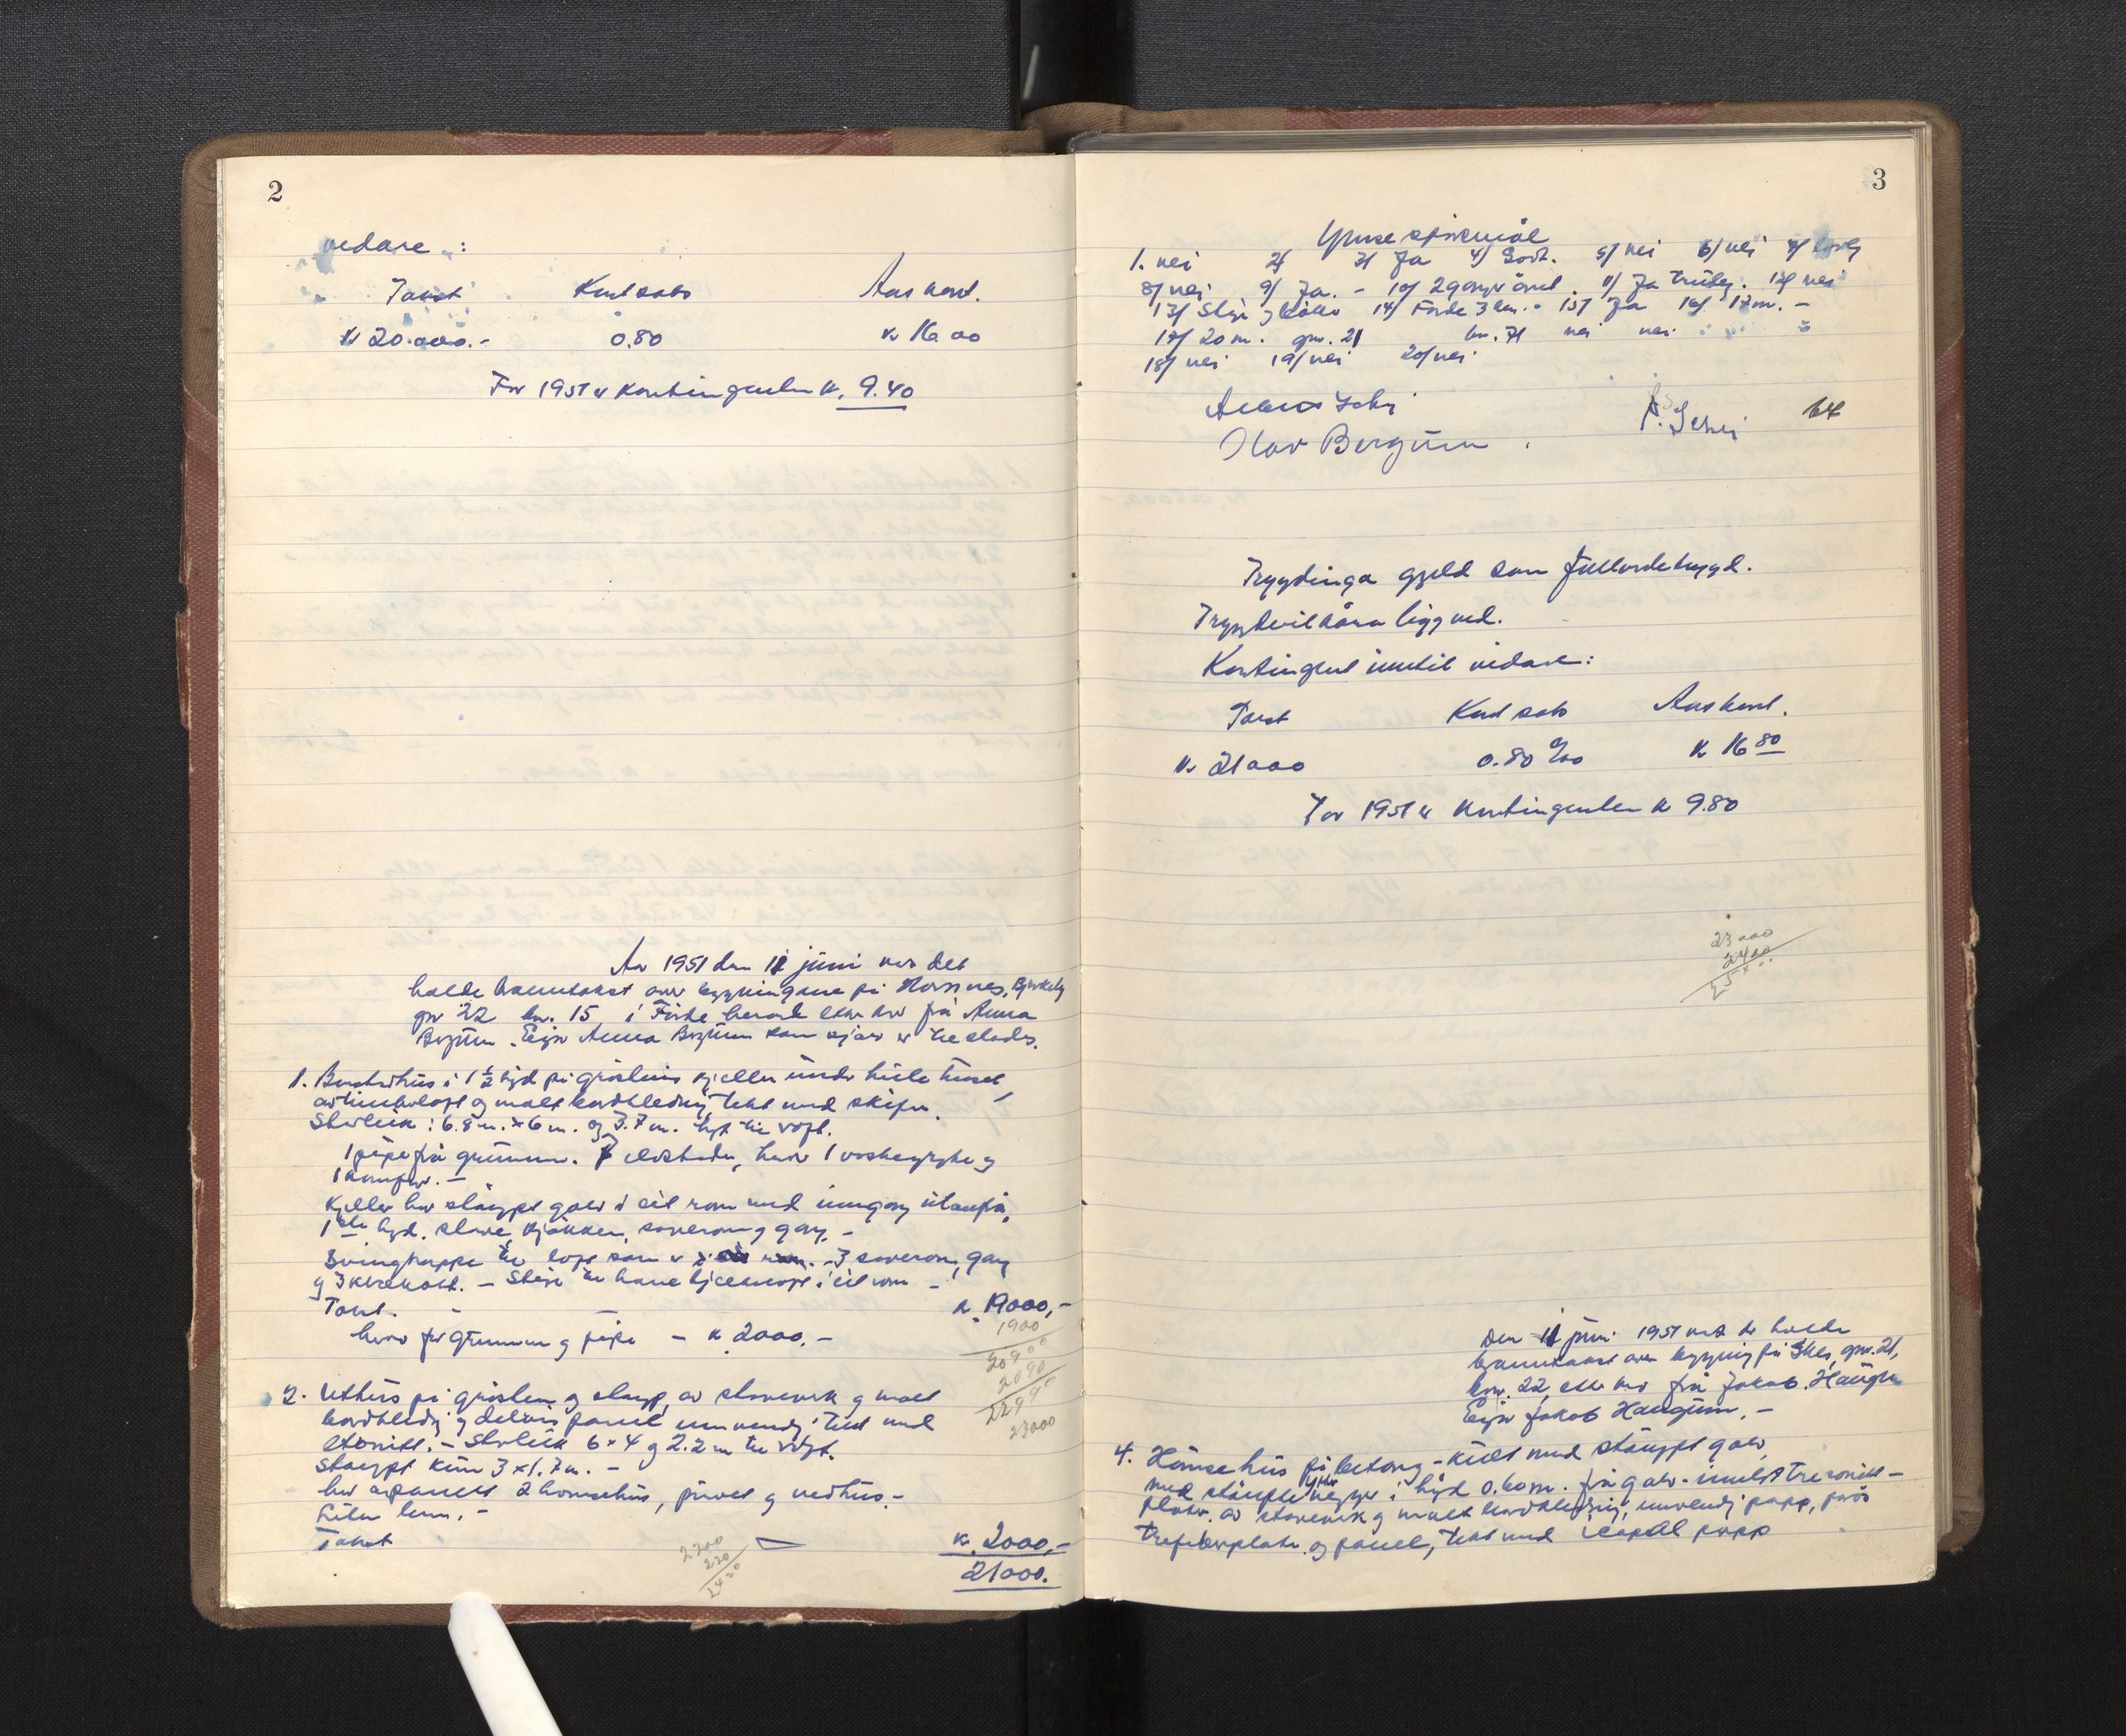 2
vedare :
Takst Kontsats Aarskont.
kr 20.000.- 0.80 kr 16.00
For 1951 er kontingenten kr. 9.40
Aar 1951 den 11 juni var det
halde branntakst over bygningane på Hornnes, Bjørkely
gnr 22 bnr. 15 i Førde herad etter krav frå Anna
Bergum. Eigar Anna Bergum som sjølv er til stades.
1. Bustadhus i 1 1/2 høgd på gråsteins kjellar under heile huset,
av timbra loft og malt bordkledning, tekt med skifer.
Storleik: 6.8 m. x 6 m. og 3.7 m. høgt til røst.
1 pipe frå grunnen. 7 eldstader, herav 1 vaskegryte og
1 komfyr. -
Kjellar har støypt golv i eit rom med inngang utanfrå.
1ste høgd. stove, kjøkken, soverom og gang. -
Svingtrappe til loft som er i 3 soverom, gang
og 3 kleskott. - Stige til hanebjelkeloft i eit rom -
Takst. - kr. 19000,-
herav for grunnmur og pipe - kr 2000.-
1900
20900
2090
22990
23000
2. Uthus på gråstein og støyp, av stavverk og malt
bordkledning og delvis panel innvendig. Tekt med
eternitt. - Storleik 6 x 4 og 2.2 m til røst.
Støypt kum 3 x 1.7 m. -
har avpanelt 2 hønsehus, privet og vedhus. -
Liten lem. -
Takst kr. 2000,-
21000.
2200
220
2420
3
Ymse spørsmål
1. nei 2/ 3/ Ja 4/ Godt. 5/ nei 6/ nei 7/
8/ nei 9/ Ja. - 10/ 2 gonger året. 11/ Ja truleg. 12/ nei
13/ Stige og bøtter 14/ Førde 3 km. - 15/ Ja 16/ 12 m. -
17/ 20 m. gnr. 21 bnr. 71 nei nei
18/ nei 19/ nei 20/ nei.
Olav Bergum.
Trygdinga gjeld som fullverdetrygd.
Trygdevilkåra ligg ved.
Kontingent inntil vidare:
Takst Kontsats Aarskont.
kr 21000 0.80 ‰ kr 16 80
For 1951 er kontingenten kr 9.80
23000
2400
Den 11 juni 1951 vart det halde
branntakst over bygning på gnr. 21,
bnr. 22 etter krav frå Jakob Haugum
Eigar Jakob Haugum. -
4. Hønsehus på betong - kult med støypt golv,
med støypte yttervegger i høgd 0.60 m. frå golv - innlagt treonitt -
plater. av stavverk og malt bordkledning, innvendig papp,
trefiberplater og panel, tekt med papp